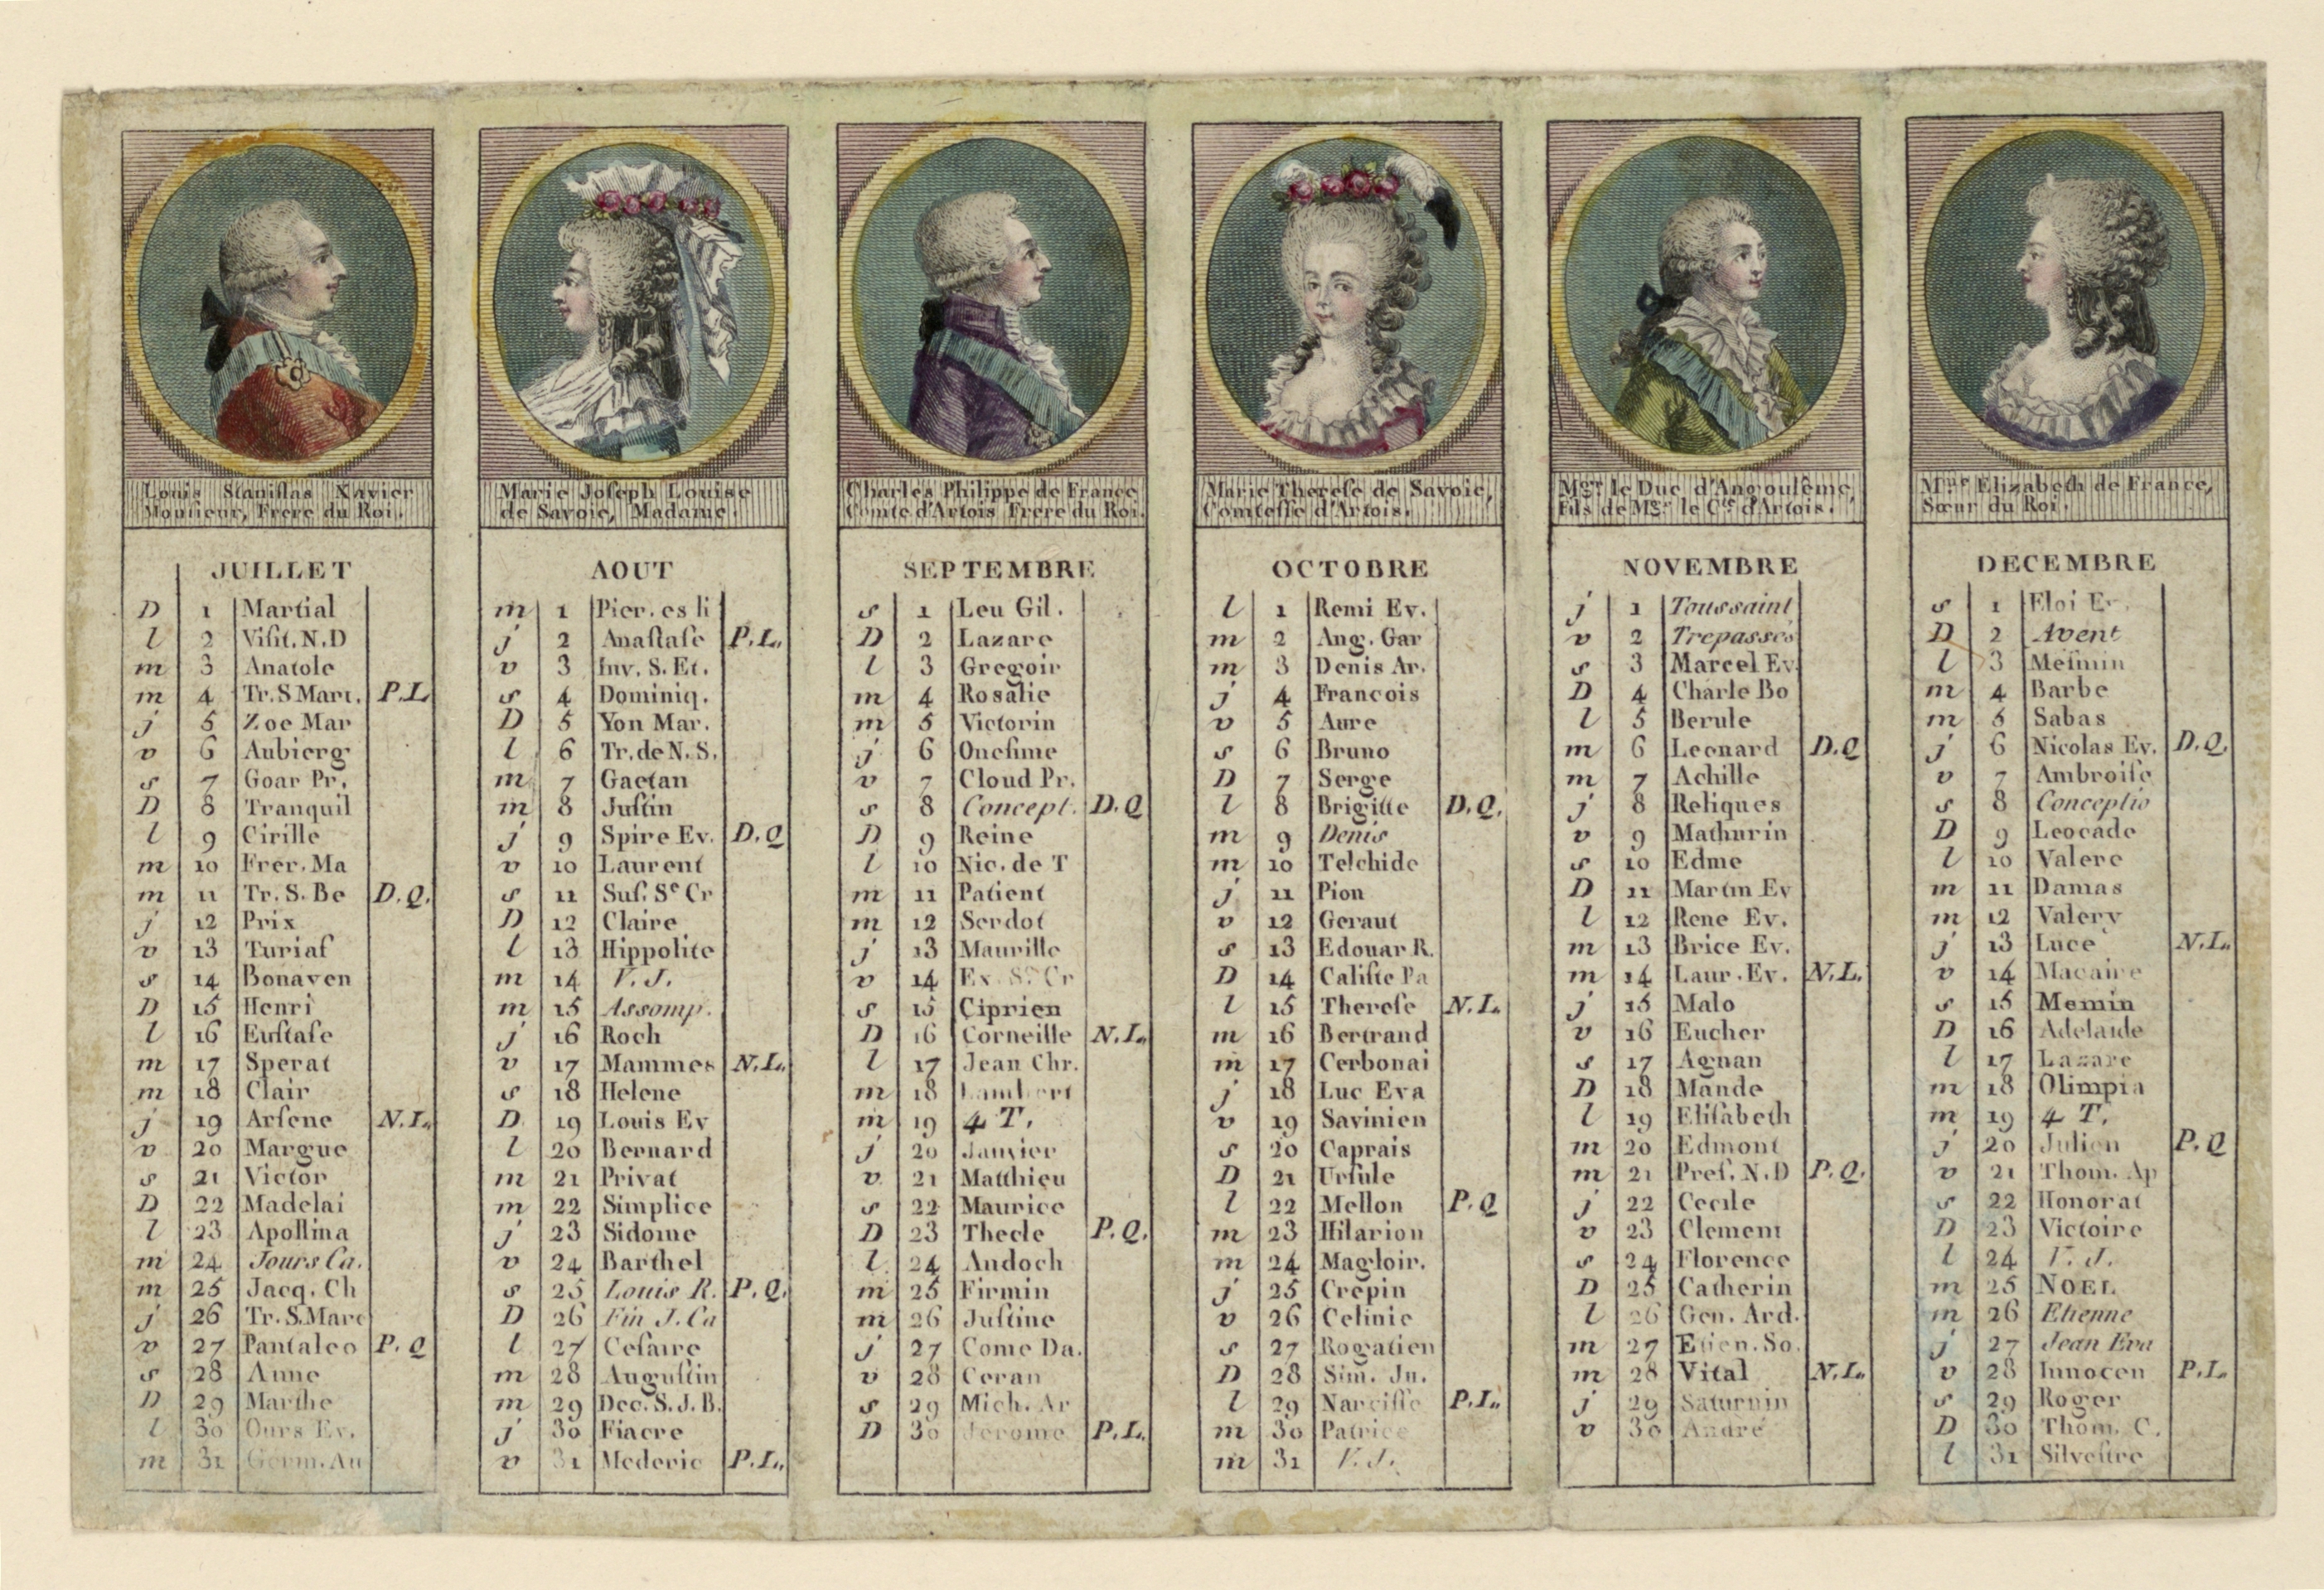 Louis Staniſlas Xavier
Monſieur, Frere du Roi.
JUILLET
D 1 Martial
l 2 Viſit. N.D
m 3 Anatole
m 4 Tr. S Mart. P.L
j 5 Zoe Mar
v 6 Aubierg
s 7 Goar Pr.
D 8 Tranquil
l 9 Cirille
m 10 Frer. Ma
m 11 Tr. S. Be D.Q.
j 12 Prix
v 13 Turiaf
s 14 Bonaven
D 15 Henri
l 16 Euſtaſe
m 17 Sperat
m 18 Clair
j 19 Arſene N.L.
v 20 Margue
s 21 Victor
D 22 Madelai
l 23 Apollina
m 24 Jours Ca.
m 25 Jacq. Ch
j 26 Tr. S. Marc
v 27 Pantaleo P.Q
s 28 Anne
D 29 Marthe
l 30 Ours Ev.
m 31 Germ. Au
Marie Joſeph Louise
de Savoie, Madame.
AOUT
m 1 Pier. es li
j 2 Anaſtaſe P.L.
v 3 Inv. S. Et.
s 4 Dominiq.
D 5 Yon Mar.
l 6 Tr. de N. S.
m 7 Gaetan
m 8 Juſtin
j 9 Spire Ev. D.Q
v 10 Laurent
s 11 Suſ. Se Cr
D 12 Claire
l 13 Hippolite
m 14 V. J.
m 15 Assomp.
j 16 Roch
v 17 Mammes N.L.
s 18 Helene
D 19 Louis Ev
l 20 Bernard
m 21 Privat
m 22 Simplice
j 23 Sidoine
v 24 Barthel
s 25 Louis R. P.Q.
D 26 Fin J. Ca
l 27 Ceſaire
m 28 Auguſtin
m 29 Dec. S. J. B.
j 30 Fiacre
v 31 Mederic P.L.
Charles Philippe de France
Comte d'Artois Frere du Roi.
SEPTEMBRE
s 1 Leu Gil.
D 2 Lazare
l 3 Gregoir
m 4 Rosalie
m 5 Victorin
j 6 Oneſime
v 7 Cloud Pr.
s 8 Concept. D.Q
D 9 Reine
l 10 Nic. de T
m 11 Patient
m 12 Serdot
j 13 Maurille
v 14 Ex. Se Cr
s 15 Ciprien
D 16 Corneille N.L.
l 17 Jean Chr.
m 18 Lambert
m 19 4 T.
j 20 Janvier
v 21 Matthieu
s 22 Maurice
D 23 Thecle P.Q.
l 24 Andoch
m 25 Firmin
m 26 Juſtine
j 27 Come Da.
v 28 Ceran
s 29 Mich. Ar
D 30 Jerome P.L.
Marie Thereſe de Savoie,
Comteſſe d'Artois.
OCTOBRE
l 1 Remi Ev.
m 2 Ang. Gar
m 3 Denis Ar.
j 4 Francois
v 5 Aure
s 6 Bruno
D 7 Serge
l 8 Brigitte D.Q.
m 9 Denis
m 10 Telchide
j 11 Pion
v 12 Geraut
s 13 Edouar R.
D 14 Caliſte Pa
l 15 Thereſe N.L.
m 16 Bertrand
m 17 Cerbonai
j 18 Luc Eva
v 19 Savinien
s 20 Caprais
D 21 Urſule
l 22 Mellon P.Q
m 23 Hilarion
m 24 Magloir.
j 25 Crepin
v 26 Celinie
s 27 Rogatien
D 28 Sim. Ju.
l 29 Narciſſe P.L.
m 30 Patrice
m 31 V. J.
Mgr le Duc d'Angoulême,
Fils de Mgr le Cte d'Artois.
NOVEMBRE
j 1 Toussaint
v 2 Trepassés
s 3 Marcel Ev.
D 4 Charle Bo
l 5 Berule
m 6 Leonard D.Q
m 7 Achille
j 8 Reliques
v 9 Mathurin
s 10 Edme
D 11 Martin Ev
l 12 Rene Ev.
m 13 Brice Ev.
m 14 Laur. Ev. N.L.
j 15 Malo
v 16 Eucher
s 17 Agnan
D 18 Mande
l 19 Eliſabeth
m 20 Edmont
m 21 Preſ. N.D P.Q.
j 22 Cecile
v 23 Clement
s 24 Florence
D 25 Catherin
l 26 Gen. Ard.
m 27 Etien. So.
m 28 Vital N.L.
j 29 Saturnin
v 30 André
Mme Elizabeth de France,
Sœur du Roi.
DECEMBRE
s 1 Eloi Ev.
D 2 Avent
l 3 Meſmin
m 4 Barbe
m 5 Sabas
j 6 Nicolas Ev. D.Q.
v 7 Ambroiſe
s 8 Conceptio
D 9 Leocade
l 10 Valere
m 11 Damas
m 12 Valery
j 13 Luce N.L.
v 14 Macaire
s 15 Memin
D 16 Adelaide
l 17 Lazare
m 18 Olimpia
m 19 4 T.
j 20 Julien P.Q
v 21 Thom. Ap
s 22 Honorat
D 23 Victoire
l 24 V. J.
m 25 NOEL
m 26 Etienne
j 27 Jean Eva
v 28 Innocen P.L.
s 29 Roger
D 30 Thom. C.
l 31 Silveſtre